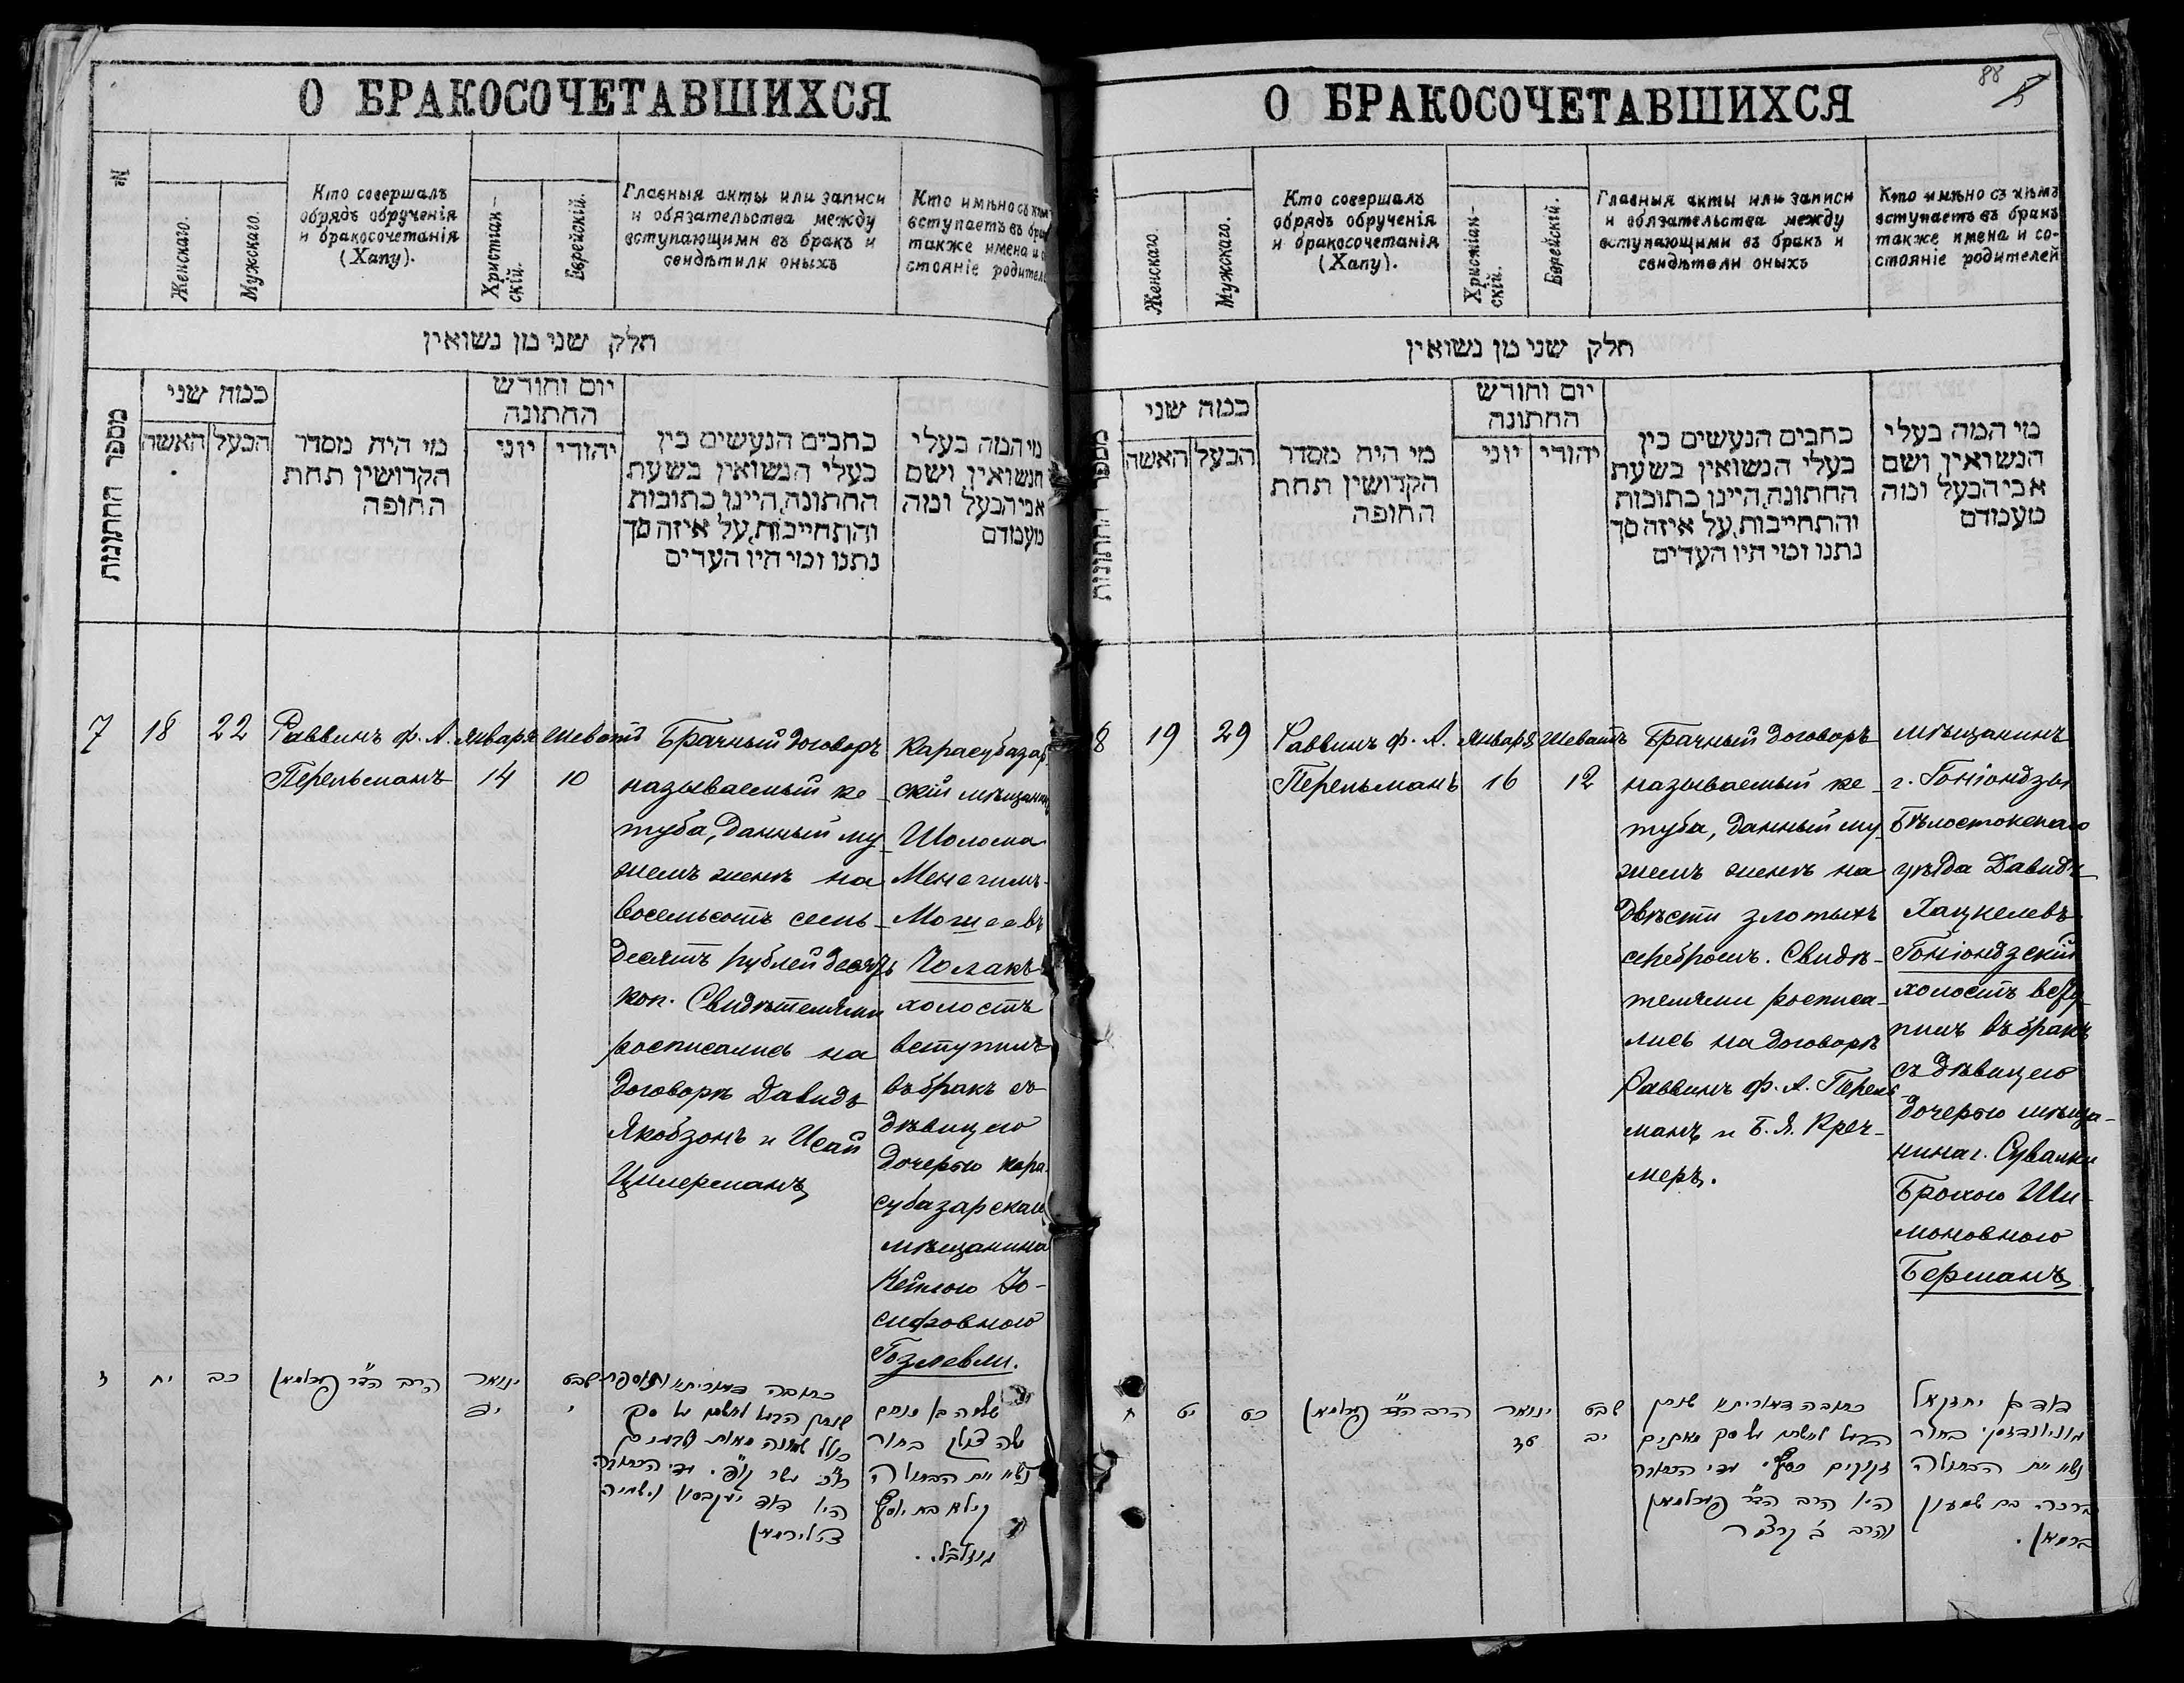 О БРАКОСОЧЕТАВШИХСЯ
№
Женскаго.
Мужскаго.
Кто совершалъ
обрядъ обрученія
и бракосочетанія
(Хапу).
Христіан-
скій.
Еврейскій.
Главныя акты или записи
и обязательства между
вступающими въ бракъ и
свидѣтили оныхъ
Кто имѣно съ
вступаетъ въ
также имена и
стояніе
חלק שני מן נשואין
מספר החתונות
כמה שני
האשה
הבעל
מי היה מסדר
הקדושין תחת
החופה
יום וחורש
החתונה
יוני
יהודי
כתבים הנעשים בין
בעלי הנשואין בשעת
החתונה, היינו כתובות
והתחייבות, על איזה סך
נתנו ומי היו העדים
מי המה בעלי
הנשואין ושם
אבי הבעל ומה
מעמדם
7
18
22
Раввинъ Ф. А.
Перельманъ
Январь
14
Шеватъ
10
Брачный договоръ
называемый ке-
туба, данный му-
жемъ женѣ на
восемьсотъ семь-
десятъ рублей десять
коп. Свидѣтелями
росписались на
договорѣ Давидъ
Якобзонъ и Исай
Цимерманъ
Карасубазар
скій мѣщанинъ
Шолома
Менагимъ-
Мошеевъ
Чолакъ
холостъ
вступилъ
въ бракъ съ
дѣвицею
дочерью кара
субазарскаго
мѣщанина
Кейлою Іо-
сифовною
Гозлевли.
ז
יח
כב
הרב הד"ר פרלמאן
ינואר
יד
שבט
י
כתובה דאוריתא ותוספת
שנתן הבעל לאשתו על סך
שלמה בן מנחם
משה
בחור
נשא את הבתולה
בת יוסף
88
О БРАКОСОЧЕТАВШИХСЯ
Женскаго.
Мужскаго.
Кто совершалъ
обрядъ обрученія
и бракосочетанія
(Хапу).
Христіан-
скій.
Еврейскій.
Главныя акты или записи
и обязательства между
вступающими въ бракъ и
свидѣтели оныхъ
Кто имѣно съ кѣмъ
вступаетъ въ бракъ
также имена и со-
стояніе родителей
חלק שני מן נשואין
מספר החתונות
כמה שני
האשה
הבעל
מי היה מסדר
הקדושין תחת
החופה
יום וחורש
החתונה
יוני
יהודי
כתבים הנעשים בין
בעלי הנשואין בשעת
החתונה, היינו כתובות
והתחייבות, על איזה סך
נתנו ומי היו העדים
מי המה בעלי
הנשואין ושם
אבי הבעל ומה
מעמדם
8
19
29
Раввинъ Ф. А.
Перельманъ
Январь
16
Шеватъ
12
Брачный договоръ
называемый ке-
туба, данный му-
жемъ женѣ на
двѣсти злотыхъ
серебромъ. Свидѣ-
телями росписа-
лись на договорѣ
Раввинъ Ф. А. Перель-
манъ и Б. Я. Креч-
меръ.
мѣщанинъ
г. Гоніондзы
Бѣлостокскаго
уѣзда Давидъ
Хацкелевъ
Гоніондзскій
холостъ всту-
пилъ въ бракъ
съ дѣвицею
дочерью мѣща-
нина г. Сувалки
Брохою Ши-
моновною
Берманъ
ח
יט
כט
הרב הד"ר פרלמאן
ינואר
טז
שבט
יב
כתובה דאוריתא שנתן
הבעל לאשתו על סך מאתים
זקוקים כסף. עדי הכתובה
היו הרב הד"ר פרלמאן
והרב ב קרצמר
דוד בן יחזקאל
בחור
נשא את הבתולה
ברכה בת שמעון
ברמאן.